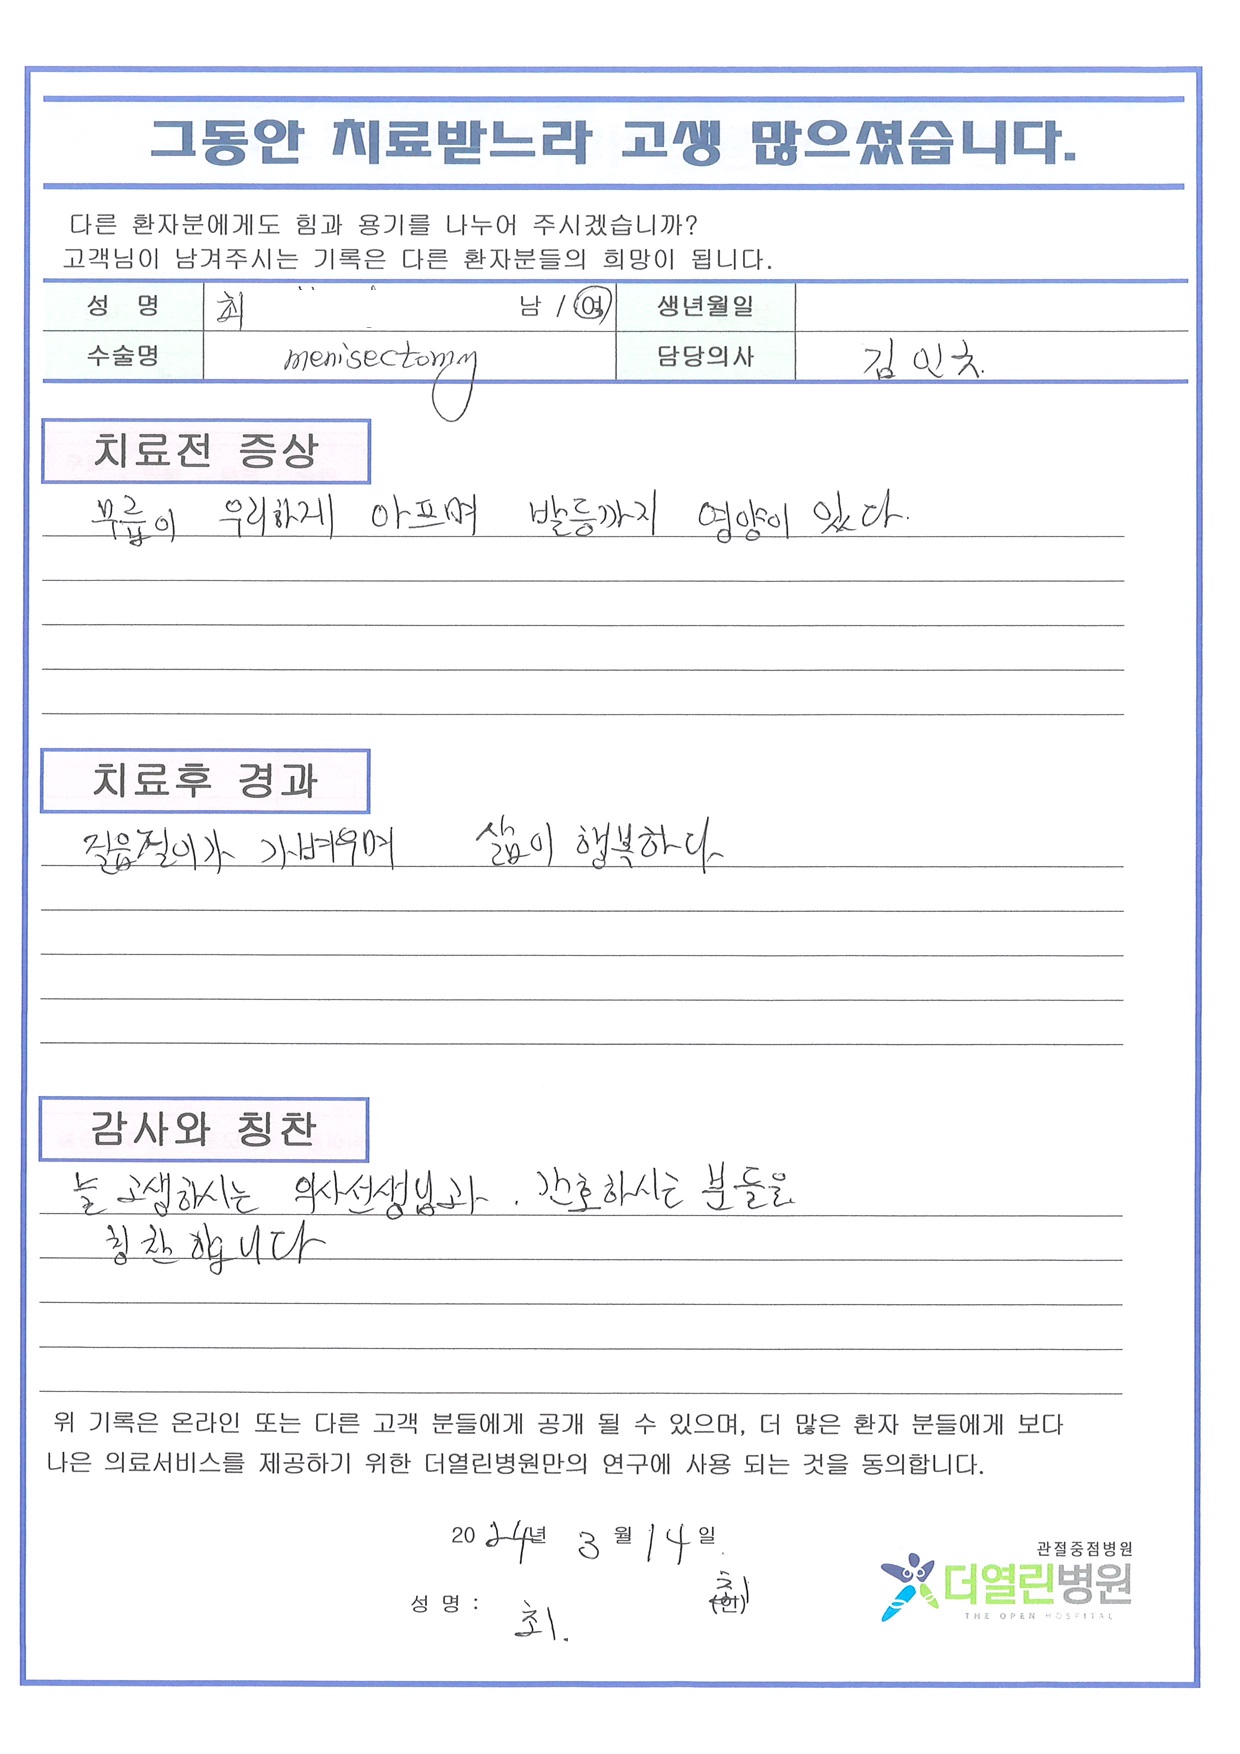 그동안 치료받느라 고생 많으셨습니다.
다른 환자분에게도 힘과 용기를 나누어 주시겠습니까?
고객님이 남겨주시는 기록은 다른 환자분들의 희망이 됩니다.
성 명 최 남 / 여 생년월일
수술명 menisectomy 담당의사 김인호.
치료전 증상
무릎이 우리하게 아프며 발등까지 영향이 있다.
치료후 경과
걸음걸이가 가벼우며 삶이 행복하다
감사와 칭찬
늘 고생하시는 의사선생님과. 간호하시는 분들을
칭찬합니다
위 기록은 온라인 또는 다른 고객 분들에게 공개 될 수 있으며, 더 많은 환자 분들에게 보다
나은 의료서비스를 제공하기 위한 더열린병원만의 연구에 사용 되는 것을 동의합니다.
2024년 3월 14일.
관절중점병원
더열린병원
THE OPEN HOSPITAL
성 명 : 최. (인) 최